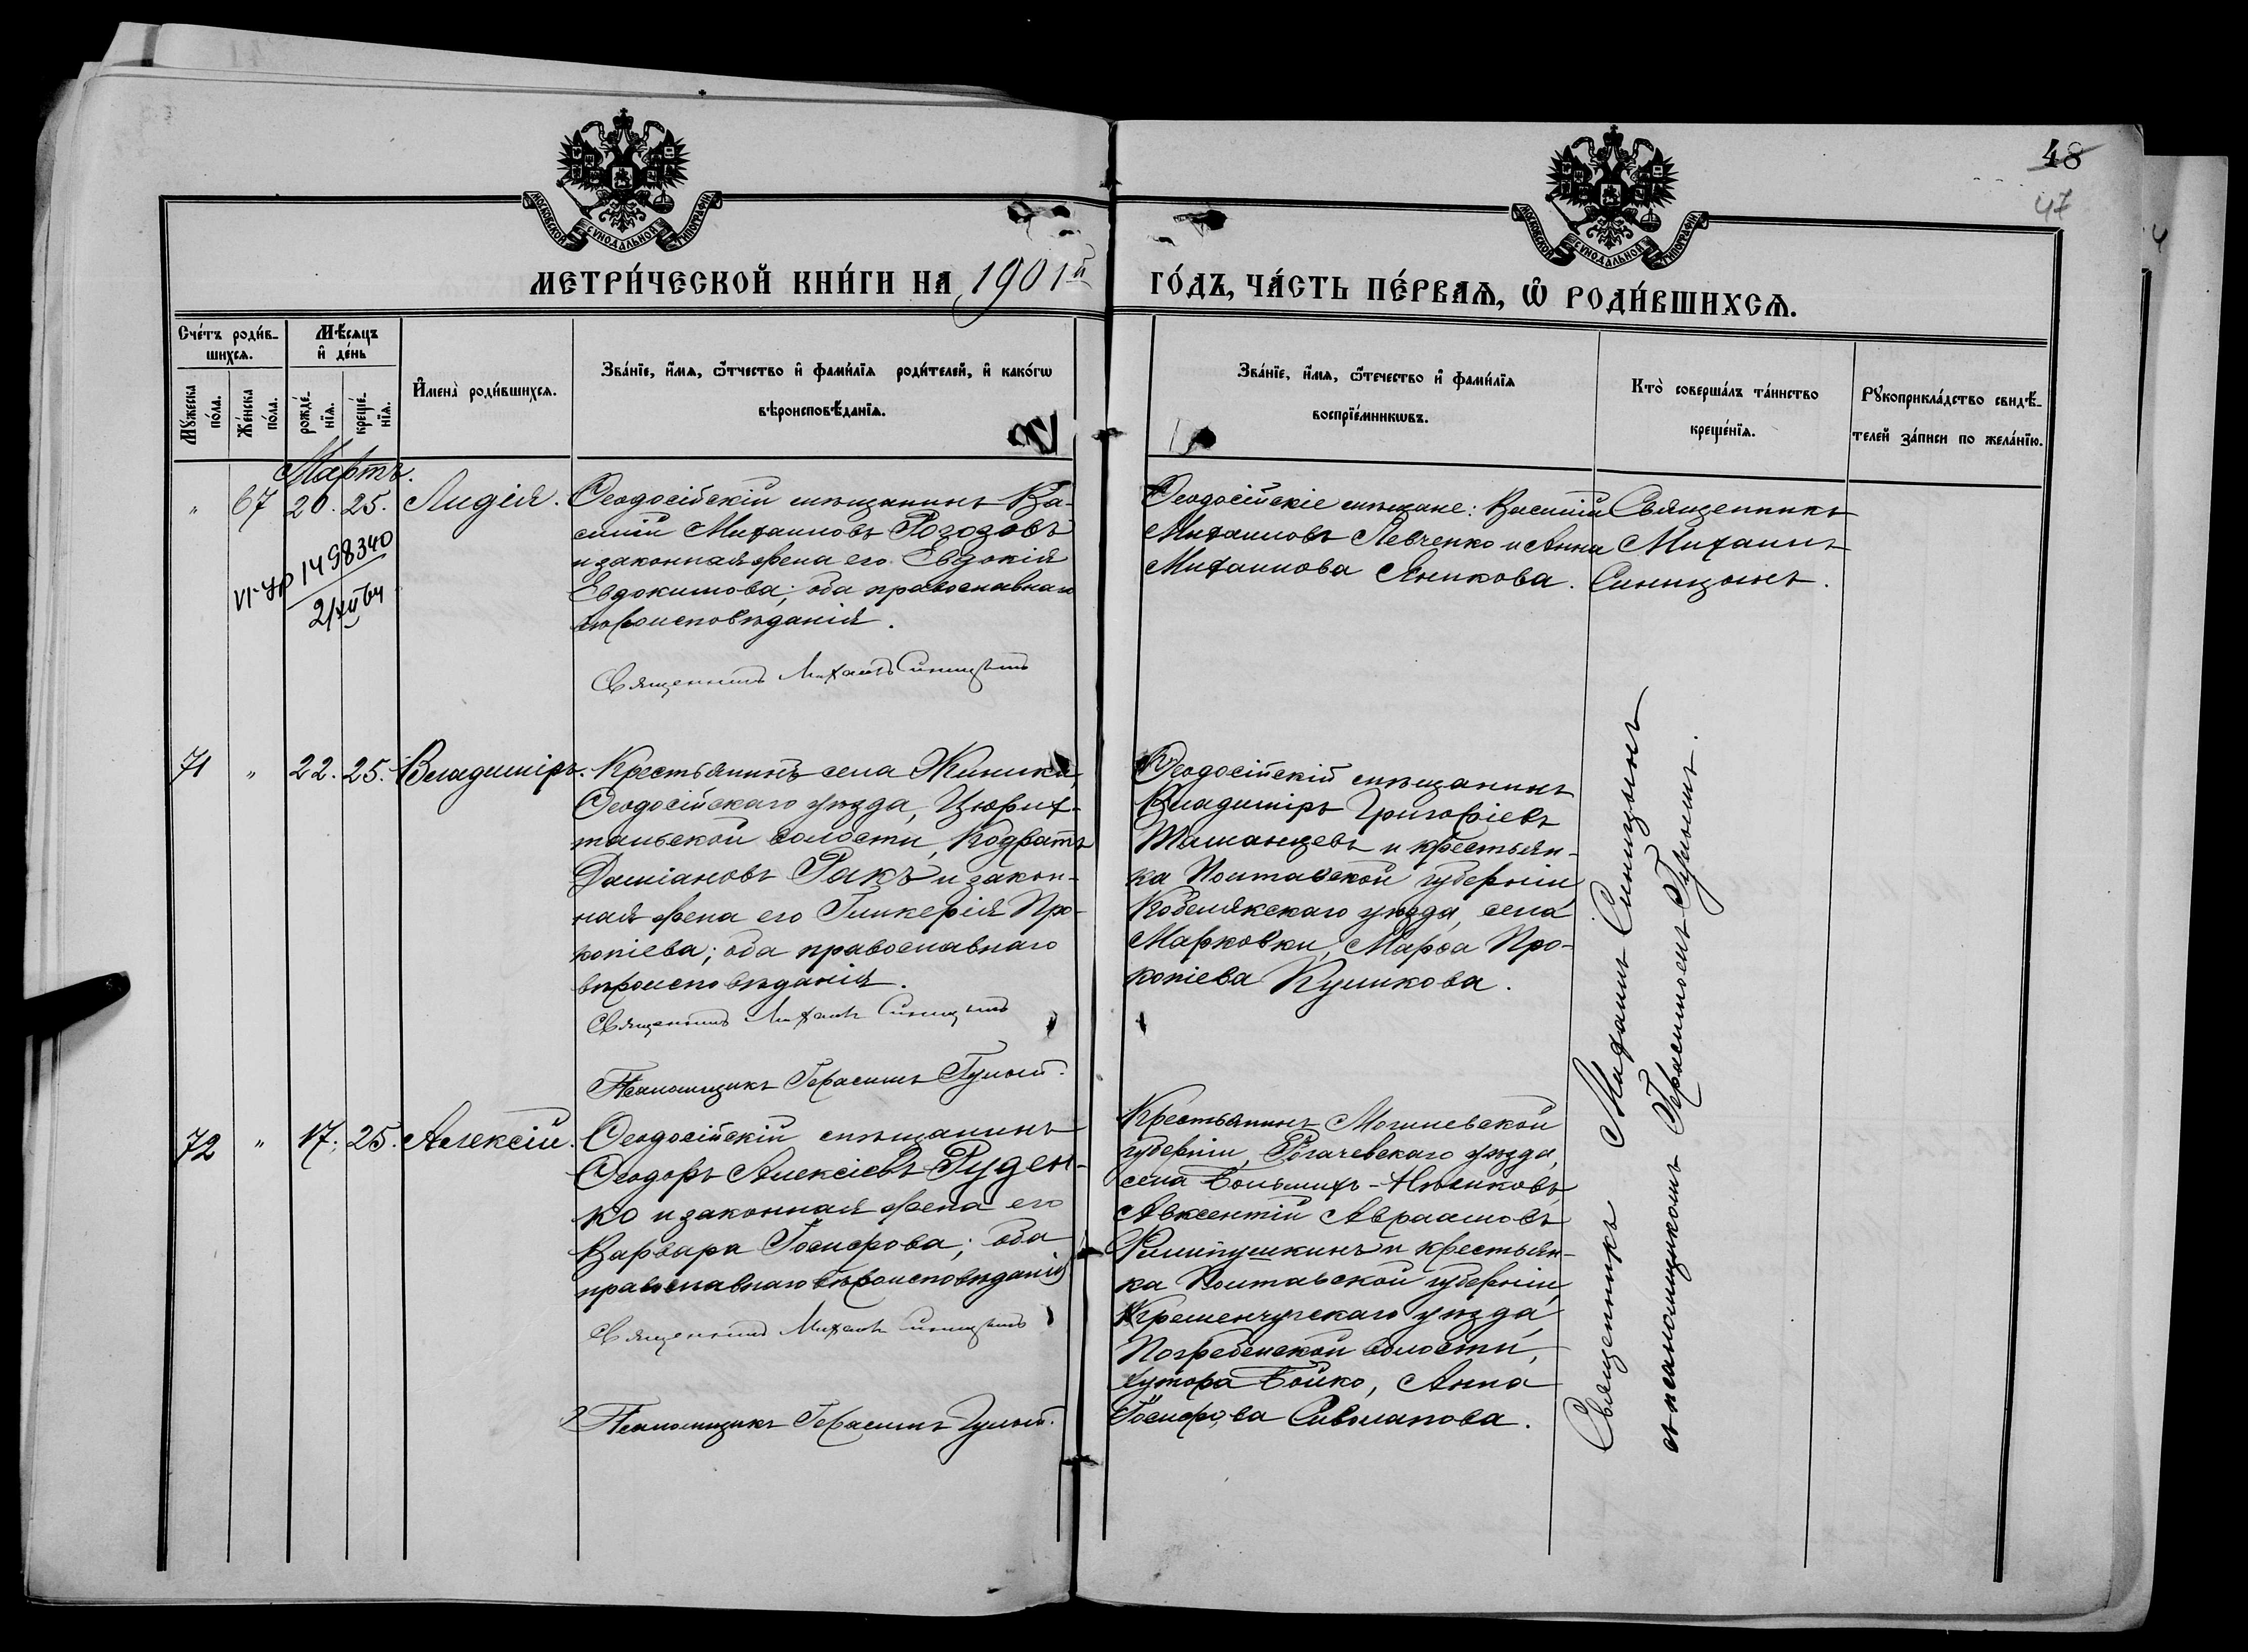 48
47
МОСКОВСКОЙ СѴНОДАЛЬНОЙ ТИПОГРАФІИ
МОСКОВСКОЙ СѴНОДАЛЬНОЙ ТИПОГРАФІИ
МЕТРИ́ЧЕСКОЙ КНИ́ГИ НА 1901й ГО́ДЪ, ЧА́СТЬ ПЕ́РВАѦ, Ѽ РОДИ́ВШИХСѦ.
Сче́тъ роди́в-
шихсѧ.
Мѣ́сѧцъ
и҆ де́нь
Мꙋжеска
по́ла.
Же́нска
по́ла.
рожде́-
нїѧ.
креще́-
нїѧ.
И҆мена̀ роди́вшихсѧ.
Зва́нїе, и҆́мѧ, ѻ҆́тчество и҆ фами́лїѧ роди́телей, и҆ како́гѡ
вѣроисповѣ́данїѧ.
Зва́нїе, и҆́мѧ, ѻ҆́течество и҆ фами́лїѧ
воспрїе́мникѡвъ.
Кто̀ соверша́лъ та́инство
креще́нїѧ.
Рꙋкоприкла́дство свидѣ́-
телей за́писи по жела́нїю.
Мартъ.
" 67 20. 25. Лидія.
Ѳеодосійскій мѣщанинъ Ва-
силій Михаиловъ Рогозовъ
и законная жена его Евдокія
Евдокимова; оба православнаго
вѣроисповѣданія.
Священникъ Михаилъ Синицынъ
VI-УР 1498340
Ѳеодосійскіе мѣщане: Василій
Михаиловъ Левченко и Анна
Михаилова Аникова.
Священникъ
Михаилъ
Синицынъ.
71 " 22. 25. Владиміръ.
Крестьянинъ села Жиники,
Ѳеодосійскаго уѣзда, Цюрих-
тальской волости, Кодратъ
Даміановъ Ракъ и закон-
ная жена его Гликерія Про-
копіева; оба православнаго
вѣроисповѣданія.
Священникъ Михаилъ Синицынъ
Псаломщикъ Герасимъ Гулый.
Ѳеодосійскій мѣщанинъ
Владиміръ Григоріевъ
Таманцевъ и крестьян-
ка Полтавской губерніи
Кобелякскаго уѣзда, села
Марковки, Марѳа Про-
копіева Куликова.
72 " 17. 25. Алексій.
Ѳеодосійскій мѣщанинъ
Ѳеодоръ Алексіевъ Руден-
ко и законная жена его
Варвара Іосифова; оба
православнаго вѣроисповѣданія
Священникъ Михаилъ Синицынъ
Псаломщикъ Герасимъ Гулый.
Крестьянинъ Могилевской
губерніи, Рогачевскаго уѣзда,
села Большихъ-
Авксентій Авраамовъ
и крестьян-
ка Полтавской губерніи,
Кременчугскаго уѣзда
волости,
хутора Бойко, Анна
Іосифова
Священникъ Михаилъ Синицынъ
съ псаломщикомъ Герасимомъ Гулымъ.